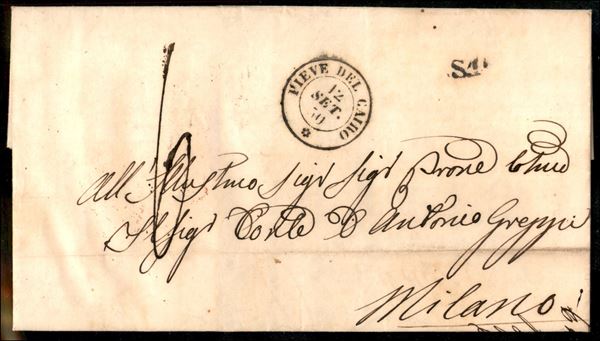 PIEVE DEL CAIRO
12
SET.
50
All' Illustmo Sigr Sigr Prone
Il Sigr Conte D Antonio Greppi
Milano